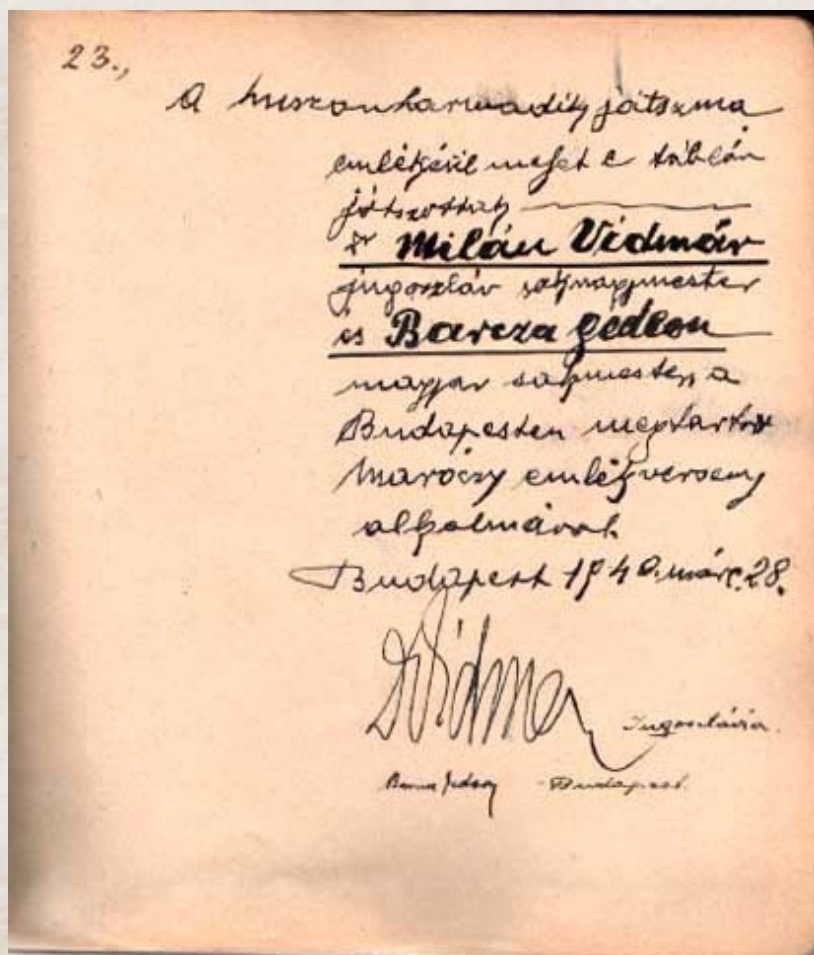 23.,
A huszonharmadik játszma
emlékéül melyet e táblán
játszottak
Dr Milán Vidmár
jugoszláv sakknagymester
és Barcza Gedeon
magyar sakkmester, a
Budapesten megtartott
Maróczy emlékverseny
alkalmával.
Budapest 1940. márc. 28.
Dr Vidmar Jugoslávia.
Barcza Gedeon Budapest.